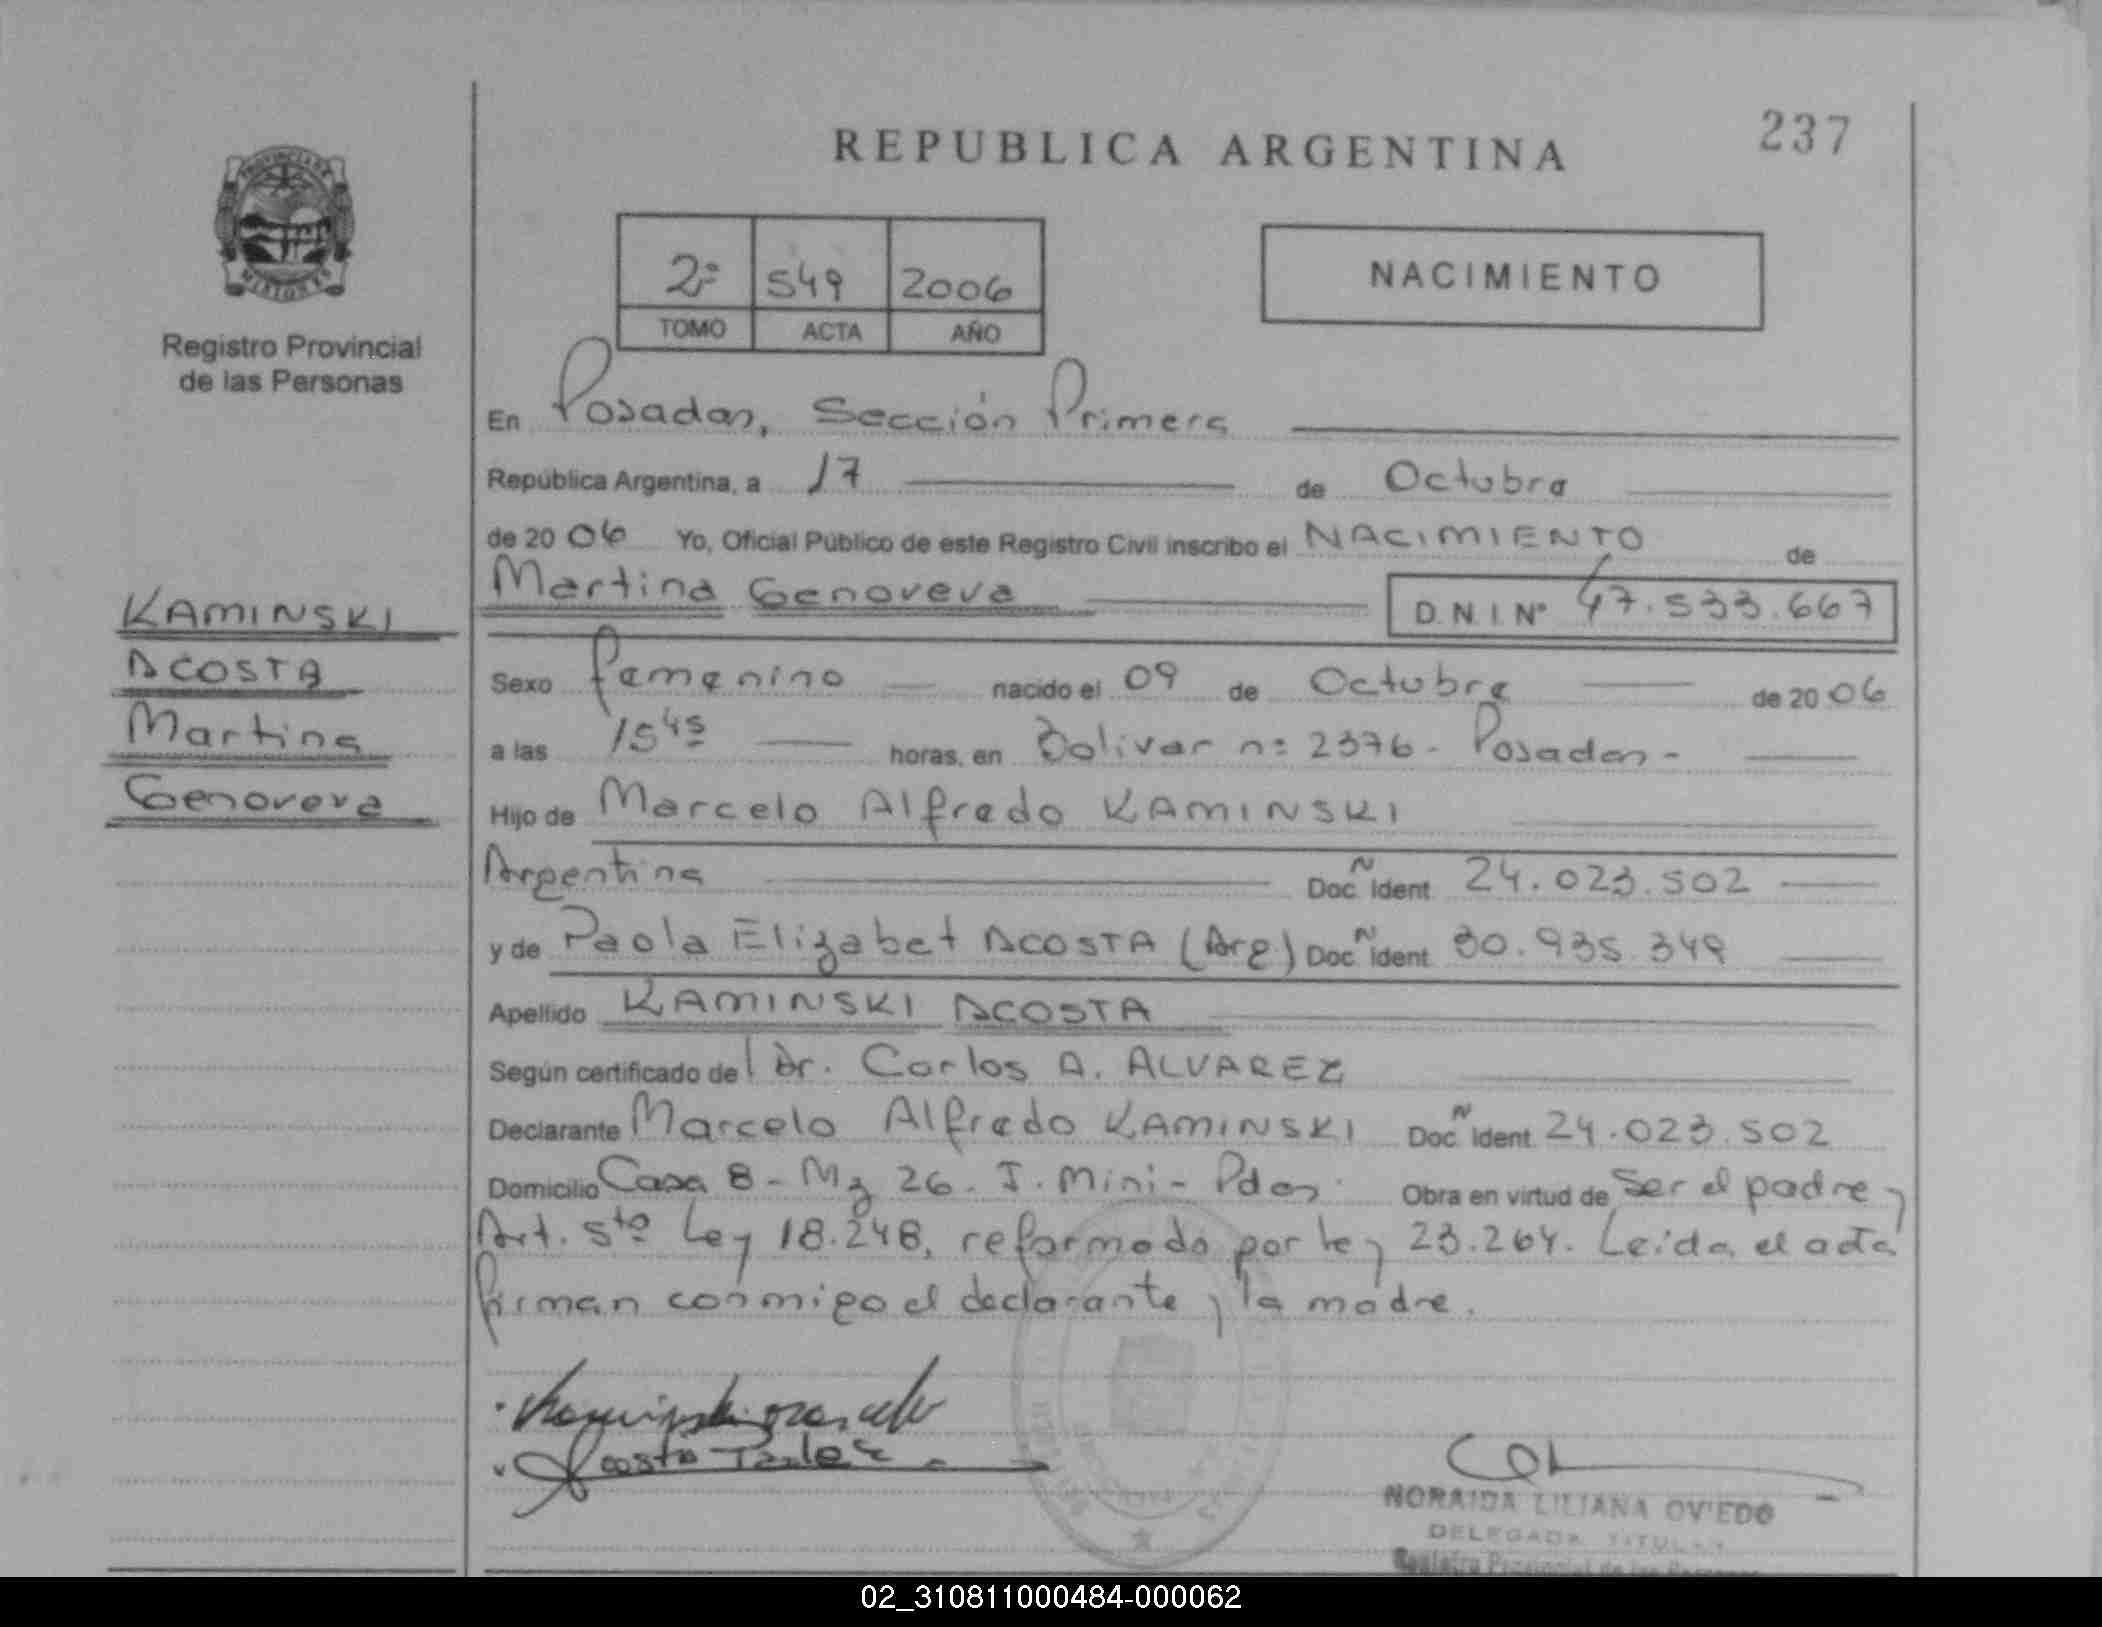 REPUBLICA ARGENTINA
237
PROVINCIA DE
MISIONES
Registro Provincial
de las Personas
2º 549 2006
TOMO ACTA AÑO
NACIMIENTO
En Posadas, Sección Primera
República Argentina, a 17 de Octubre
de 2006 Yo, Oficial Público de este Registro Civil inscribo el NACIMIENTO de
Martina Genoveva D.N.I. Nº 47.533.667
KAMINSKI
ACOSTA
Martina
Genoveva
Sexo femenino nacido el 09 de Octubre de 2006
a las 15 45 horas, en Bolivar nº 2376 - Posadas -
Hijo de Marcelo Alfredo KAMINSKI
Argentina Doc. Ident. N 24.023.502
y de Paola Elizabet ACOSTA (Arg) Doc. Ident. N 30.935.349
Apellido KAMINSKI ACOSTA
Según certificado de Dr. Carlos A. ALVAREZ
Declarante Marcelo Alfredo KAMINSKI Doc. Ident. N 24.023.502
Domicilio Casa 8 - Mz 26 - I. Mini - Pdas. Obra en virtud de Ser el padre y
Art. 5to Ley 18.248, reformado por ley 23.264. Leida el acta
firman conmigo el declarante y la madre.
Kaminski Marcelo
Acosta Paola E
NORAIDA LILIANA OVIEDO
DELEGADA TITULAR
Registro Provincial de las Personas
02_310811000484-000062